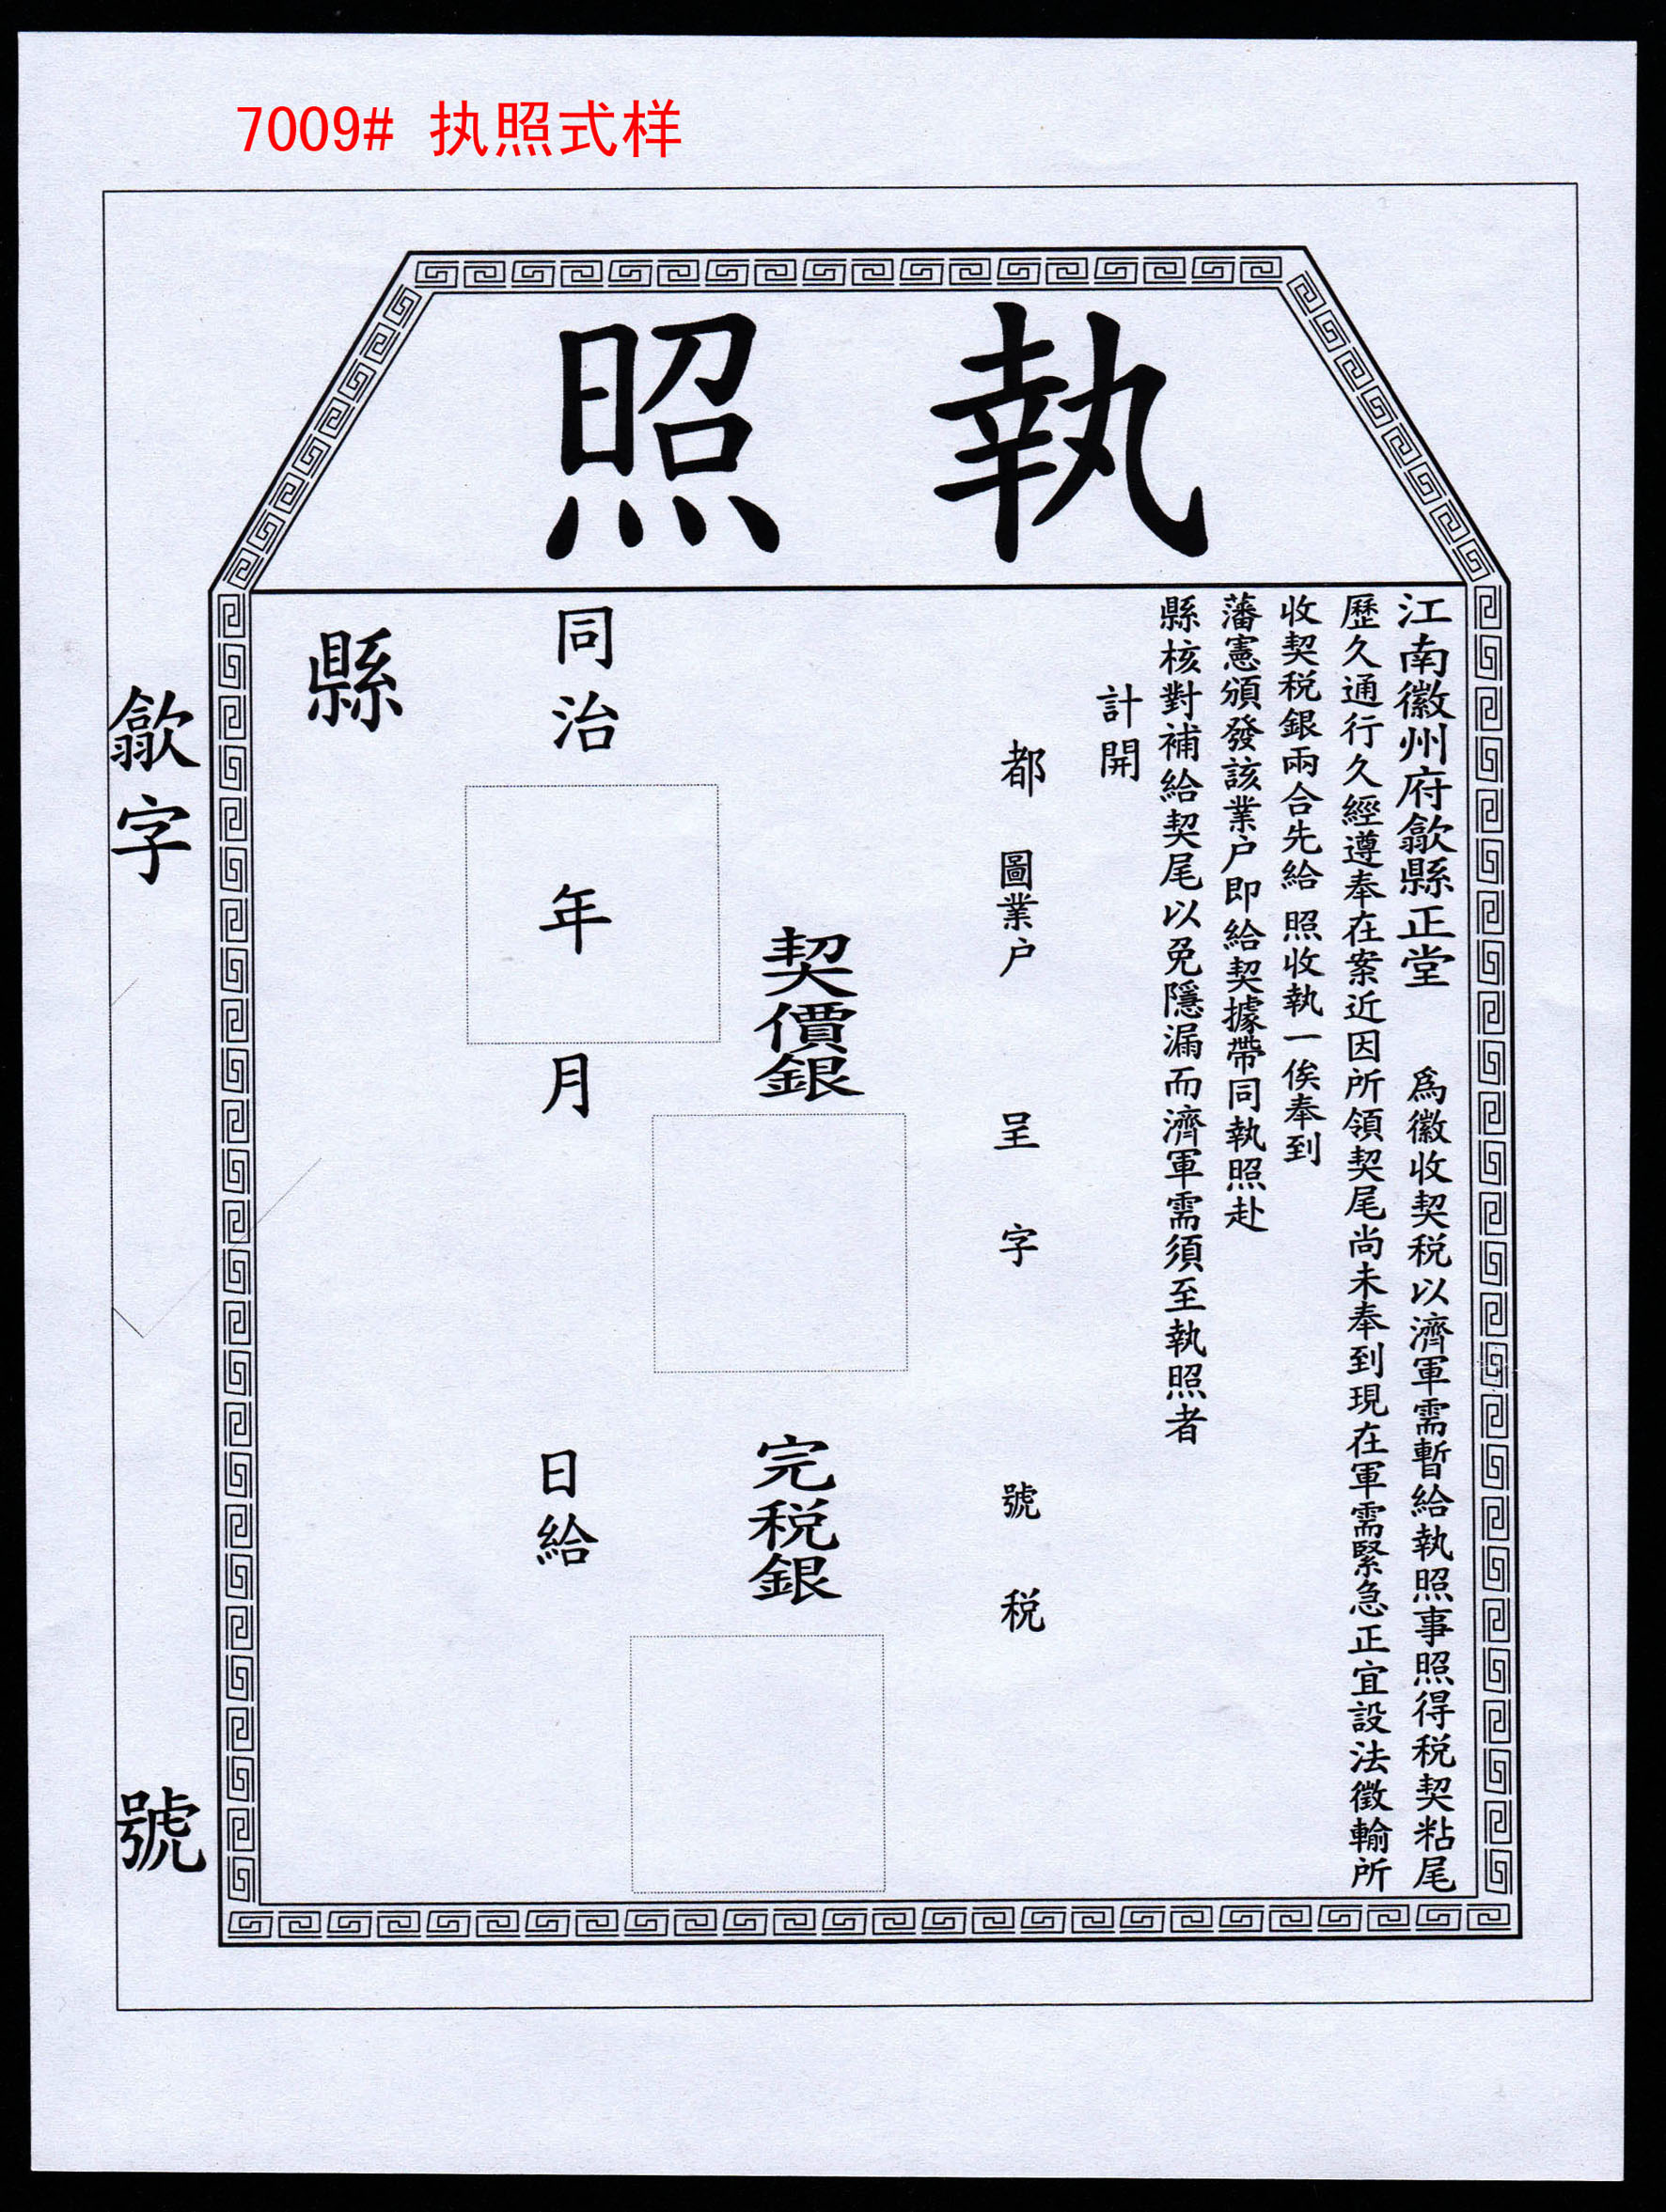 7009# 执照式样
執照
江南徽州府歙縣正堂 爲徽收契税以濟軍需暫給執照事照得税契粘尾
歷久通行久經遵奉在案近因所領契尾尚未奉到現在軍需緊急正宜設法徵輸所
收契税銀兩合先給 照收執一俟奉到
藩憲頒發該業户即給契據帶同執照赴
縣核對補給契尾以免隱漏而濟軍需須至執照者
計開
都 圖業户 呈 字 號 税
契價銀 完税銀
同治 年 月 日給
縣
歙字 號